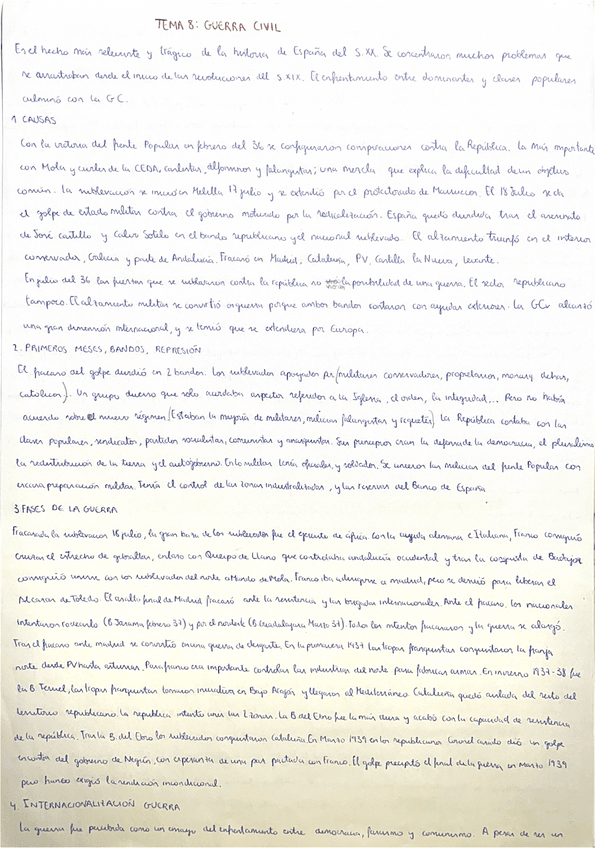 TEMA 8: GUERRA CIVIL
Es el hecho más relevante y trágico de la historia de España del S.XX. Se concentraron muchos problemas que
se arrastraban desde el inicio de las revoluciones del S.XIX. El enfrentamiento entre dominantes y clases populares
culminó con la GC.
1 CAUSAS
Con la victoria del Frente Popular en febrero del 36 se configuraron conspiraciones contra la República. La más importante
con Mola y civiles de la CEDA, carlistas, alfonsinos y falangistas; una mezcla que explica la dificultad de un objetivo
común. La sublevación se inició en Melilla 17 julio y se extendió por el protectorado de Marruecos. El 18 Julio se da
el golpe de estado militar contra el gobierno motivado por la radicalización. España quedó dividida tras el asesinato
de José Castillo y Calvo Sotelo en el bando republicano y el nacional sublevado. El alzamiento triunfó en el interior
conservador, Galicia y parte de Andalucía. Fracasó en Madrid, Cataluña, PV, Castilla la Nueva, Levante.
En julio del 36 las fuerzas que se sublevaron contra la república no la posibilidad de una guerra. El sector republicano
tampoco. El alzamiento militar se convirtió en guerra porque ambos bandos contaron con ayudas exteriores. La GCv alcanzó
una gran dimensión internacional, y se temió que se extendiera por Europa.
2. PRIMEROS MESES, BANDOS, REPRESIÓN
El fracaso del golpe dividió en 2 bandos. Los sublevados apoyados por (militares conservadores, propietarios, monarq, dchas,
católicos). Un grupo diverso que solo acordaba aspectos referidos a la Iglesia, el orden, la integridad... Pero no había
acuerdo sobre el nuevo régimen (Estaban la mayoría de militares, milicias falangistas y requetés) La República contaba con las
clases populares, sindicatos, partidos socialistas, comunistas y anarquistas. Sus principios eran la defensa de la democracia, el pluralismo
la redistribución de la tierra y el autogobierno. En lo militar tenía oficiales, y soldados. Se unieron las milicias del Frente Popular con
escasa preparación militar. Tenía el control de las zonas industrializadas, y las reservas del Banco de España
3 FASES DE LA GUERRA
Fracasada la sublevación 18 julio, la gran baza de los sublevados fue el ejército de áfrica. Con la ayuda alemana e Italiana, Franco consiguió
cruzar el estrecho de gibraltar, enlazo con Queipo de Llano que controlaba andalucía occidental y tras la conquista de Badajoz
consiguió unirse con los sublevados del norte al Mando de Mola. Franco iba a dirigirse a madrid, pero se desvió para liberar el
Alcázar de Toledo. El asalto final de Madrid fracasó ante la resistencia y las brigadas internacionales. Ante el fracaso, los nacionales
intentaron rodearlo (B Jarama febrero 37) y por el nordeste (B Guadalajara Marzo 37). Todos los intentos fracasaron y la guerra se alargó.
Tras el fracaso ante madrid se convirtió en una guerra de desgaste. En la primavera 1937 las tropas franquistas conquistaron la franja
norte desde PV hasta asturias. Para franco era importante controlar las industrias del norte para fabricar armas. En invierno 1937-38 fue
la B Teruel, las tropas franquistas tomaron iniciativa en Bajo Aragón y llegaron al Mediterráneo Cataluña quedó aislada del resto del
territorio republicano. La republica intentó unir las 2 zonas. La B del Ebro fue la más dura y acabó con la capacidad de resistencia
de la república. Tras la B del Ebro los sublevados conquistaron Cataluña En Marzo 1939 en los republicanos Coronel casado dió un golpe
en contra del gobierno de Negrín, con esperanza de una paz pactada con Franco. El golpe precipitó el final de la guerra en Marzo 1939
pero franco exigió la rendición incondicional.
4. INTERNACIONALIZACIÓN GUERRA
La guerra fue percibida como un ensayo del enfrentamiento entre democracia, fascismo y comunismo. A pesar de ser un